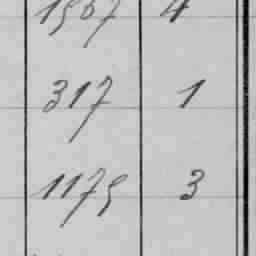 1567 4
317 1
1175 3